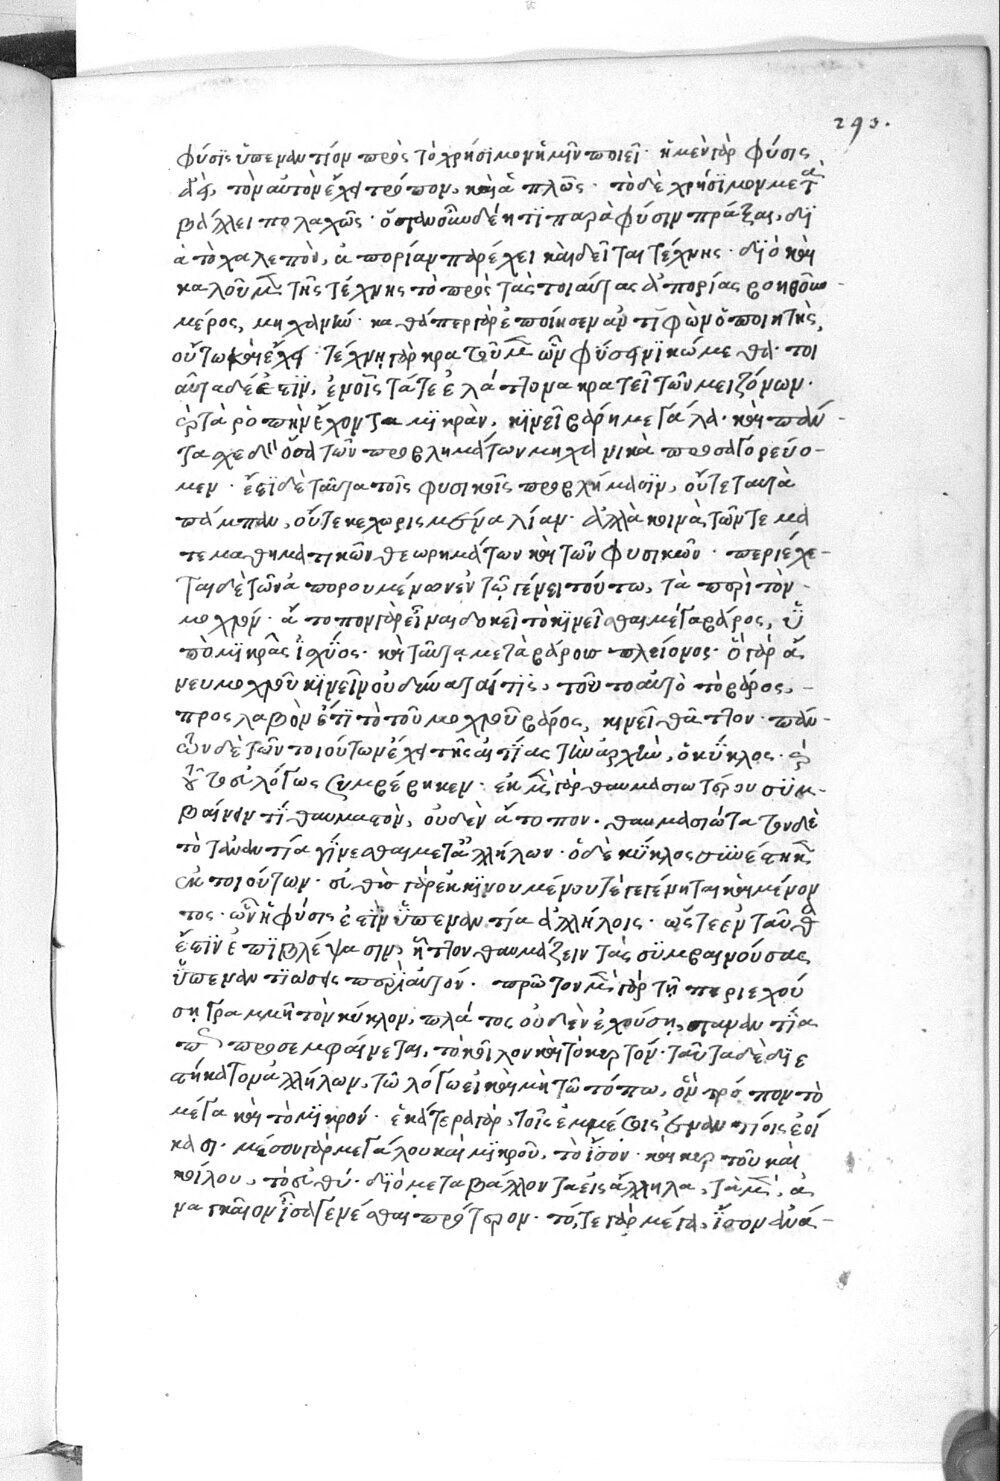 293.
φύσις ὑπεναντίον πρὸς τὸ χρήσιμον ἡμῖν ποιεῖ· ἡ μὲν γὰρ φύσις
ἀεὶ, τὸν αὐτὸν ἔχει τρόπον, καὶ ἁπλῶς· τὸ δὲ χρήσιμον μετα
βάλλει πολαχῶς· ὅταν οὖν δέη τι παρὰ φύσιν πρᾶξαι, δι
ὰ τὸ χαλεπὸν, ἀπορίαν παρέχει καὶ δεῖται τέχνης· διὸ καὶ
καλοῦμεν τῆς τέχνης τὸ πρὸς τὰς τοιαύτας ἀπορίας βοηθοῦν
μέρος, μηχανήν· καθάπερ γὰρ ἐποίησεν ἀντιφῶν ὁ ποιητὴς,
οὕτω καὶ ἔχει· τέχνῃ γὰρ κρατοῦμεν ὧν φύσει νικώμεθα· τοι
αῦτα δέ ἐστιν, ἐν οἷς τά τε ἐλάττονα κρατεῖ τῶν μειζόνων·
καὶ τὰ ῥοπὴν ἔχοντα μικρὰν, κινεῖ βάρη μεγάλα· καὶ πάν
τα σχεδὸν ὅσα τῶν προβλημάτων μηχανικὰ προσαγορεύο-
μεν· ἔστι δὲ ταῦτα τοῖς φυσικοῖς προβλήμασιν, οὔτε ταυτὰ
πάμπαν, οὔτε κεχωρισμένα λίαν· ἀλλὰ κοινὰ τῶν τε μα
τε μαθηματικῶν θεωρημάτων καὶ τῶν φυσικῶν· περιέχε-
ται δὲ τῶν ἀπορουμένων ἐν τῷ γένει τούτω, τὰ περὶ τὸν
μοχλόν· ἄτοπον γὰρ εἶναι δοκεῖ τὸ κινεῖσθαι μέγα βάρος, ὑ
πὸ μικρᾶς ἰσχύος· καὶ ταῦτα μετὰ βάρους πλείονος· ὃ γὰρ ἄ
νευ μοχλοῦ κινεῖν οὐ δύναταί τις, τοῦτο αὐτὸ τὸ βάρος,
προσλαβὼν ἔτι τὸ τοῦ μοχλοῦ βάρος, κινεῖ θᾶττον· πάν-
των δὲ τῶν τοιούτων ἔχει τῆς αἰτίας τὴν ἀρχὴν, ὁ κύκλος· καὶ
τοῦτο εὐλόγως συμβέβηκεν· ἐκ μὲν γὰρ θαυμασιωτέρου συμ-
βαίνειν τι θαυμαστὸν, οὐδὲν ἄτοπον· θαυμασιώτατον δὲ
τὸ τἀναντία γίνεσθαι μετἀλλήλων· ὁ δὲ κύκλος συνέστηκεν
ἐκ τοιούτων· εὐθὺς γὰρ ἐκ κινουμένου τὲ γεγένηται καὶ μένον
τος· ὧν ἡ φύσις ἐστὶν ὑπεναντία ἀλλήλοις· ὥστε ἐνταῦθα
ἔστιν ἐπιβλέψασιν, ἧττον θαυμάζειν τὰς συμβαινούσας
ὑπεναντιώσεις περὶ αὐτόν· πρῶτον μὲν γὰρ τῇ περιεχού
σῃ γραμμῇ τὸν κύκλον, πλάτος οὐδὲν ἐχούσῃ, τἀναντία
πως προσεμφαίνεται, τὸ κοῖλον καὶ τὸ κυρτόν· ταῦτα δὲ διέ
στηκεν ἀλλήλων, τῷ λόγω εἰ καὶ μὴ τῷ τόπω, ὃν τρόπον τὸ
μέγα καὶ τὸ μικρόν· ἑκάτερα γὰρ, τοῖς ἐν μέσοις ἐναντίοις ἐοί
κασι· μέσον γὰρ μεγάλου καὶ μικροῦ, τὸ ἴσον· καὶ κυρτοῦ καὶ
κοίλου, τὸ εὐθύ· διὸ μεταβάλλοντα εἰς ἄλληλα, τὰ μὲν, ἀ
ναγκαῖον ἴσα γενέσθαι πρότερον· τό, τε γὰρ μέγα, ἴσον ἀνά-